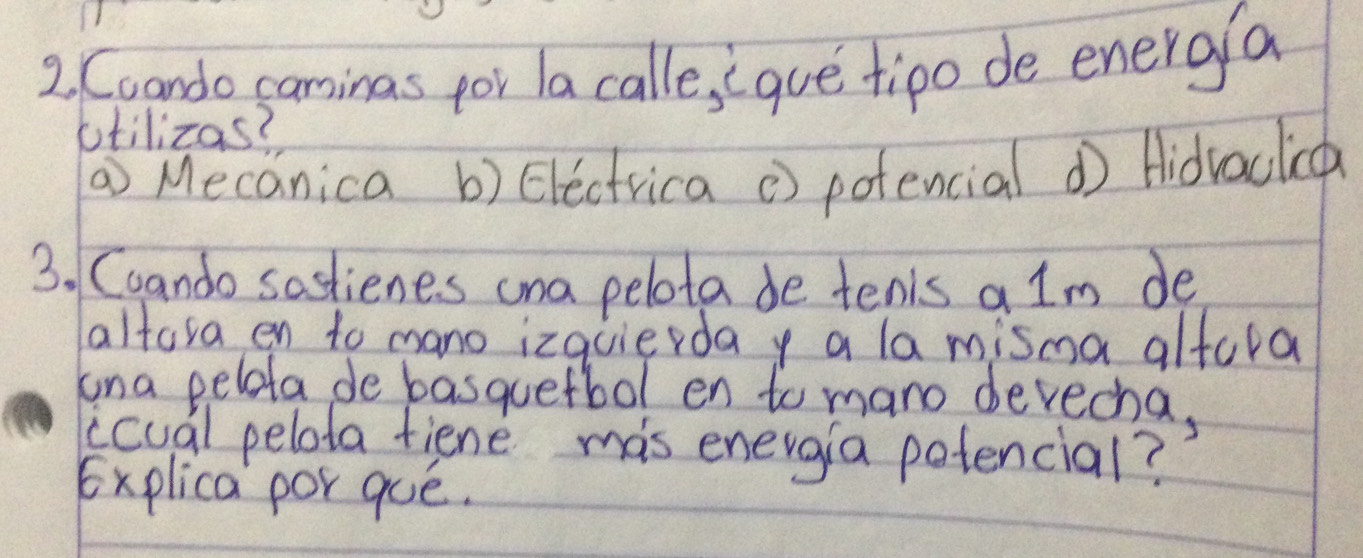 2. Cuando caminas por la calle, ¿qué tipo de energía
utilizas?
a) Mecánica b) Eléctrica c) potencial d) Hidraulica
3. Cuando sostienes una pelota de tenis a 1m de
altura en tu mano izquierda y a la misma altura
una pelota de basquetbol en tu mano derecha,
¿cuál pelota tiene más energía potencial?
Explica por qué.